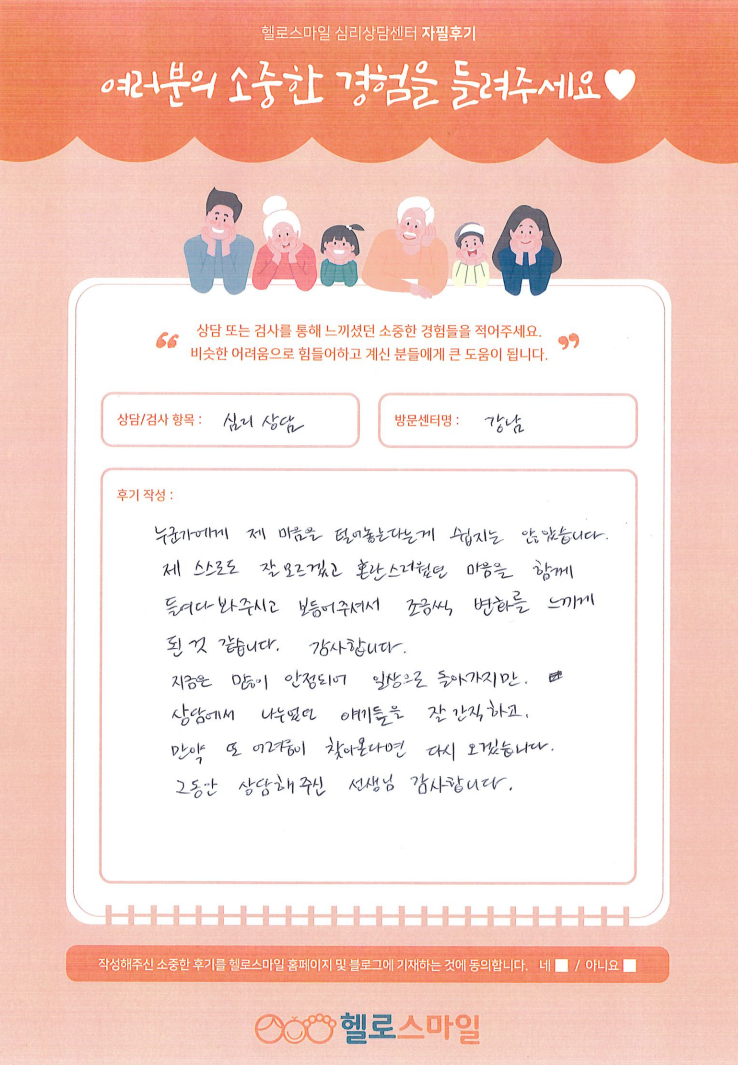 헬로스마일 심리상담센터 자필후기
여러분의 소중한 경험을 들려주세요♥
“ 상담 또는 검사를 통해 느끼셨던 소중한 경험들을 적어주세요. ”
비슷한 어려움으로 힘들어하고 계신 분들에게 큰 도움이 됩니다.
상담/검사 항목 : 심리 상담
방문센터명 : 강남
후기 작성 :
누군가에게 제 마음을 털어놓는다는게 쉽지는 않았습니다.
제 스스로도 잘 모르겠고 혼란스러웠던 마음을 함께
들여다 봐주시고 보듬어주셔서 조금씩 변화를 느끼게
된 것 같습니다. 감사합니다.
지금은 많이 안정되어 일상으로 돌아가지만,
상담에서 나누었던 얘기들을 잘 간직하고,
만약 또 어려움이 찾아온다면 다시 오겠습니다.
그동안 상담해 주신 선생님 감사합니다.
작성해주신 소중한 후기를 헬로스마일 홈페이지 및 블로그에 기재하는 것에 동의합니다. 네 / 아니요
헬로스마일